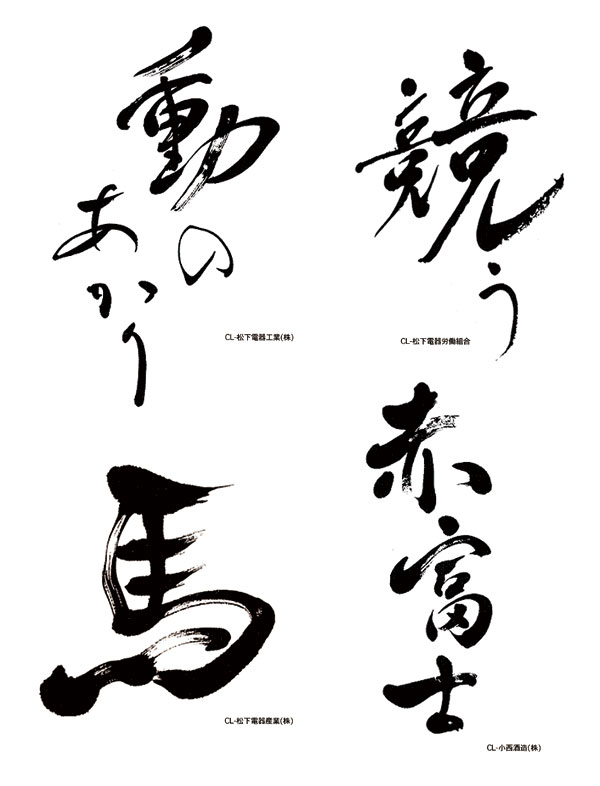 動の
あかり
CL-松下電器工業(株)
競う
CL-松下電器労働組合
馬
CL-松下電器産業(株)
赤富士
CL-小西酒造(株)